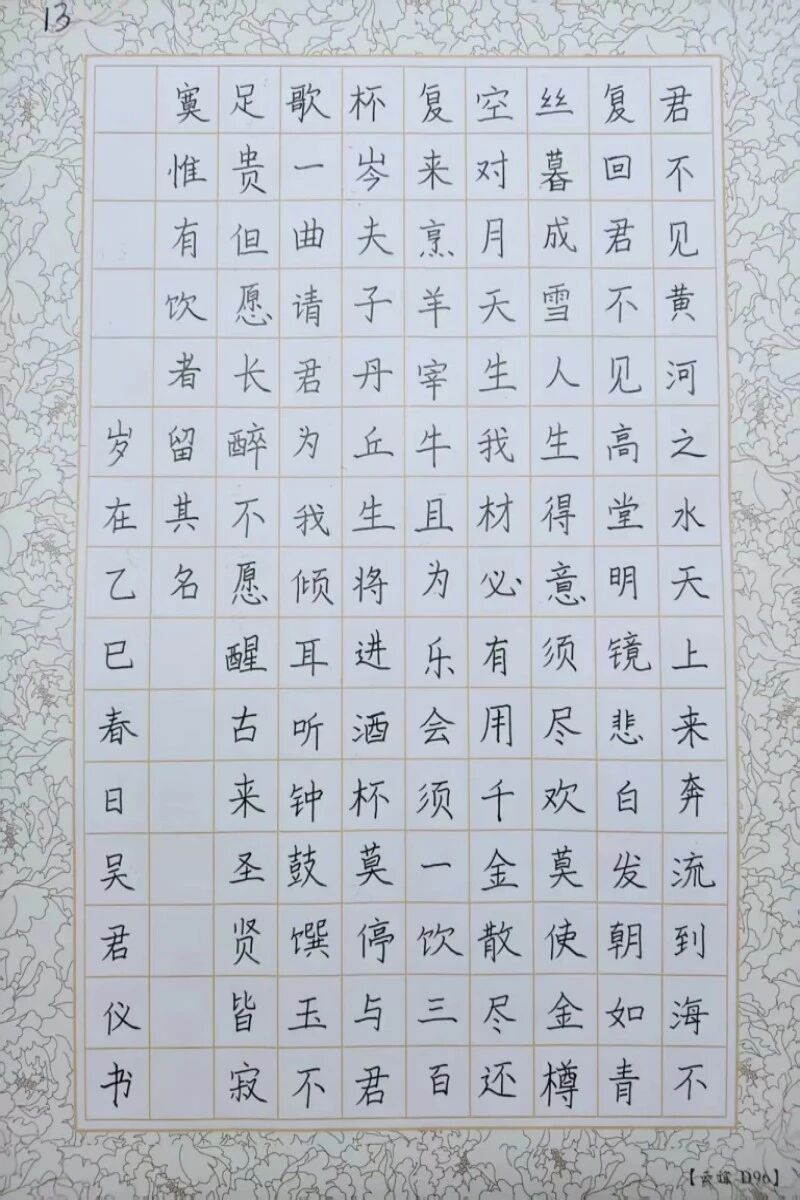 13
君不见黄河之水天上来奔流到海不
复回君不见高堂明镜悲白发朝如青
丝暮成雪人生得意须尽欢莫使金樽
空对月天生我材必有用千金散尽还
复来烹羊宰牛且为乐会须一饮三百
杯岑夫子丹丘生将进酒杯莫停与君
歌一曲请君为我倾耳听钟鼓馔玉不
足贵但愿长醉不愿醒古来圣贤皆寂
寞惟有饮者留其名
岁在乙巳春日吴君仪书
D96】